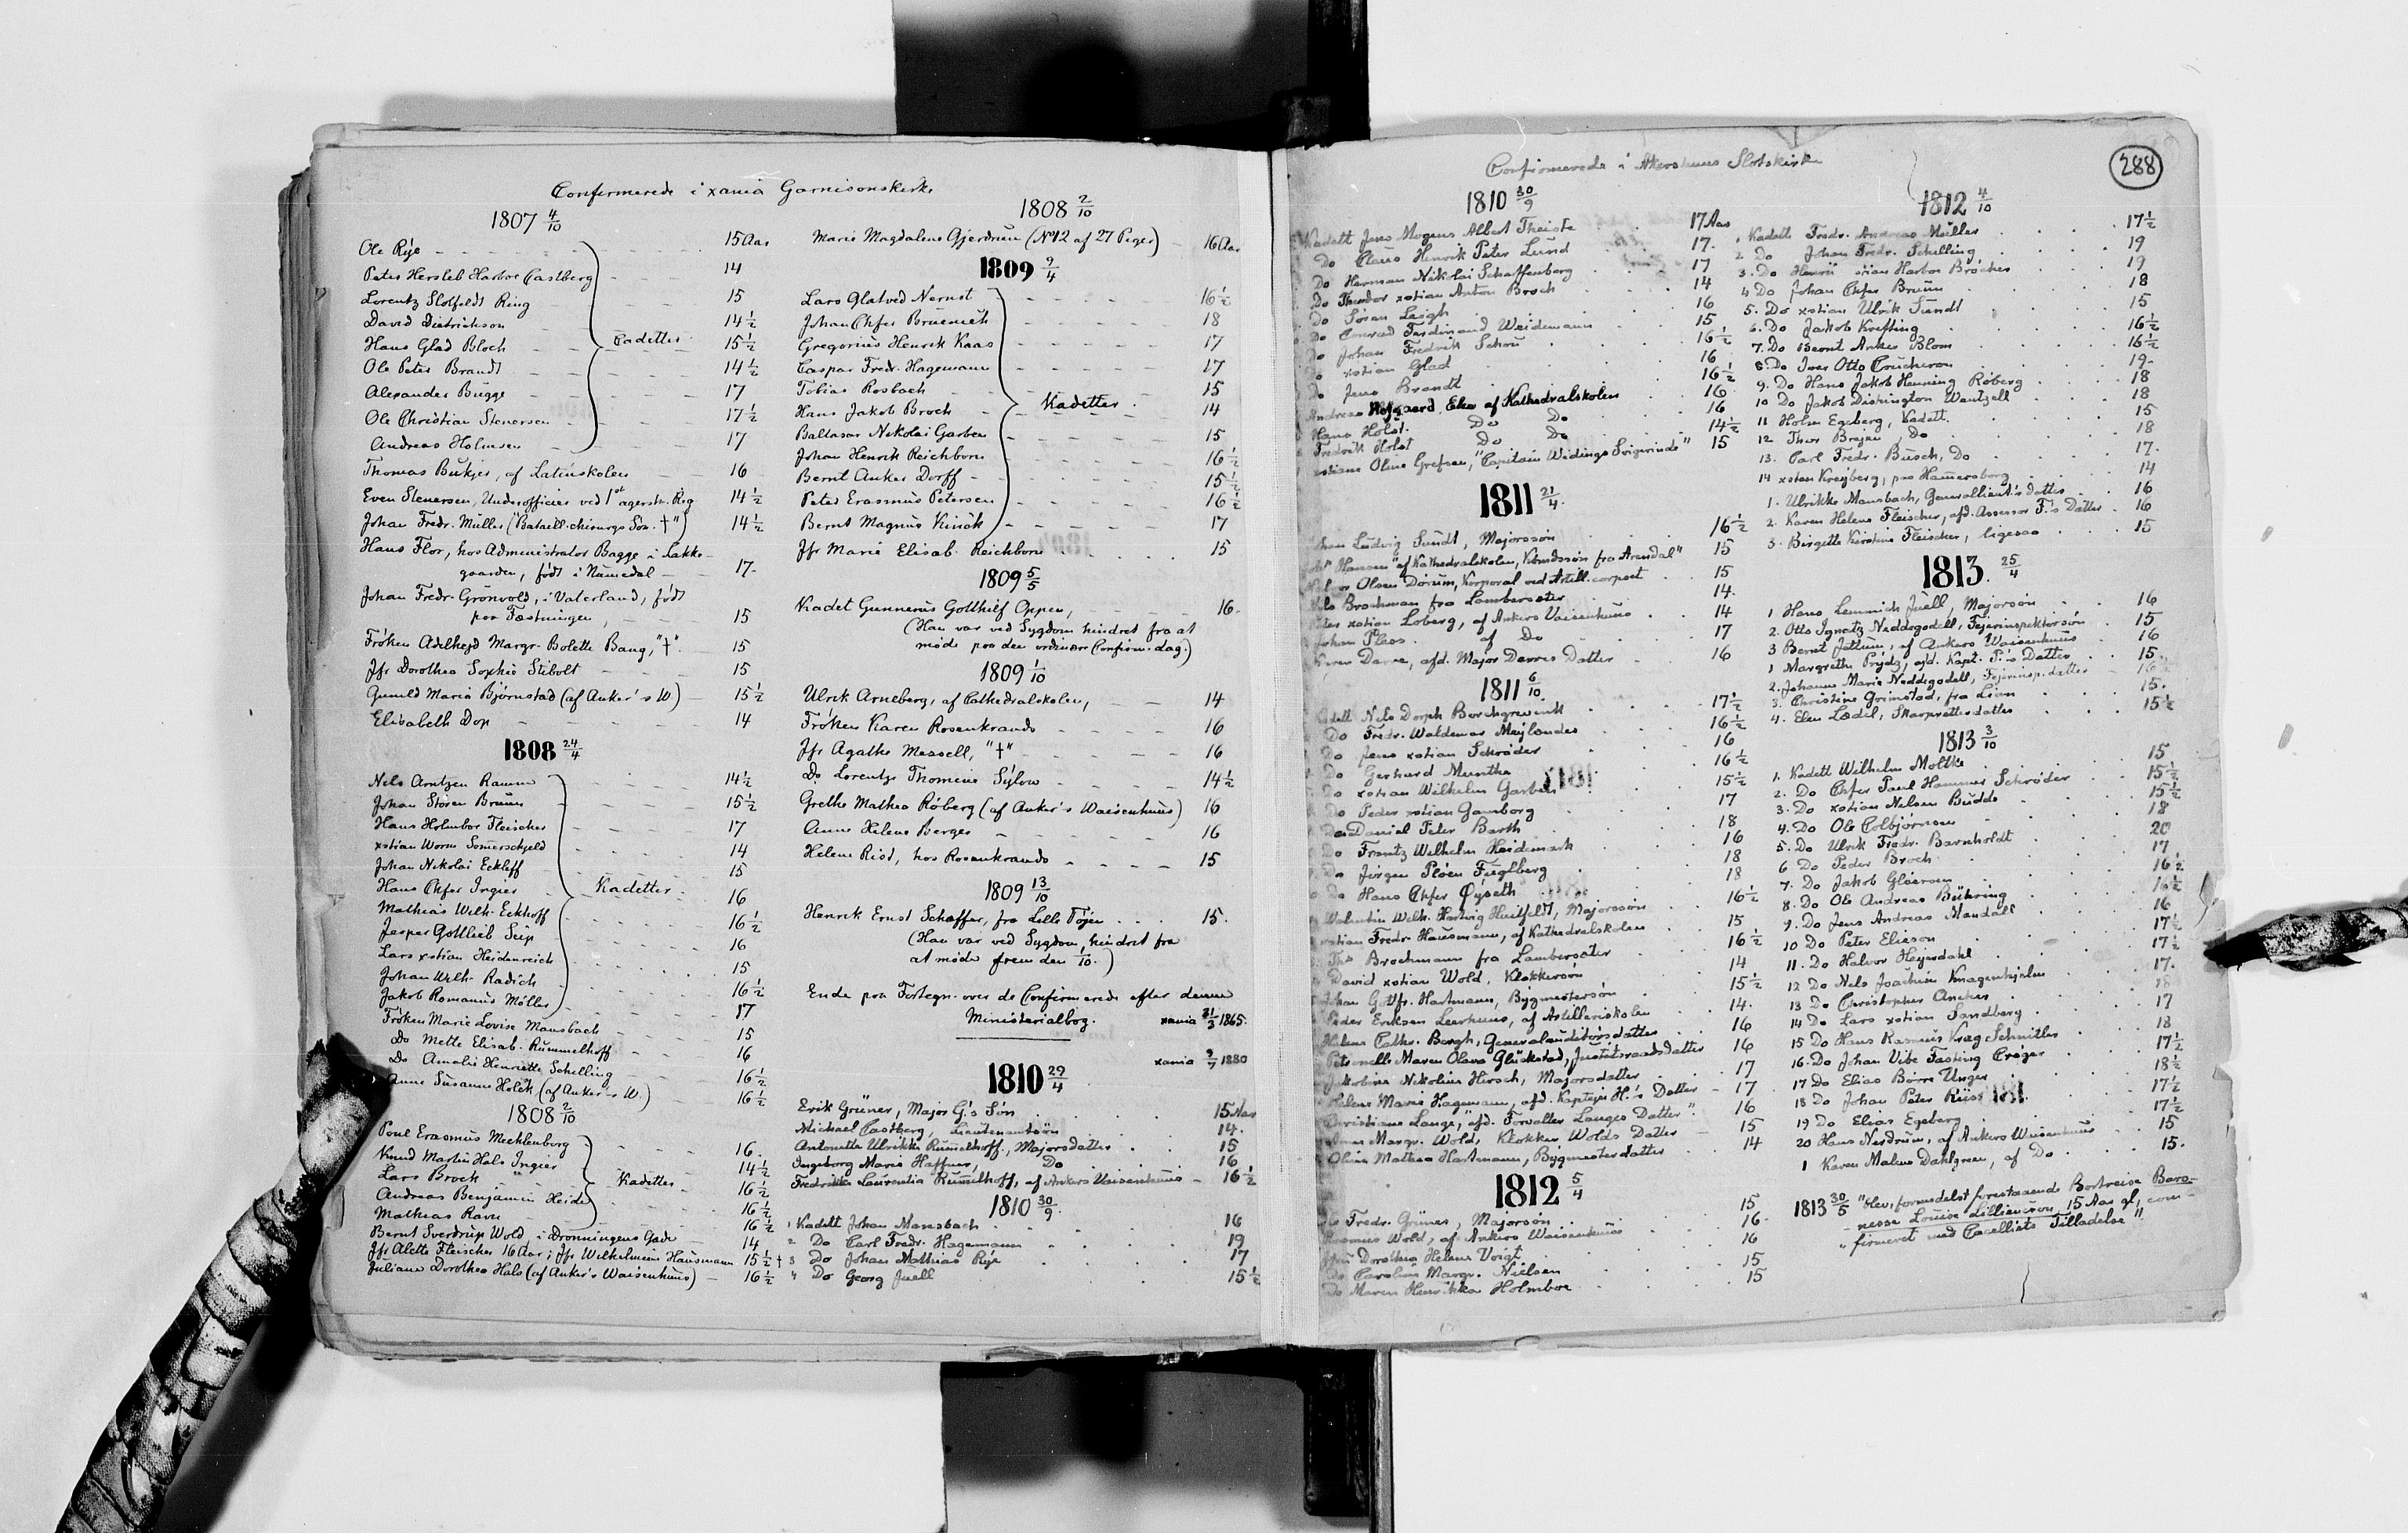 Confirmerede i xania Garnisonskirke
1807 4/10
Ole Rÿe 15 Aar
Peter Hersleb Harboe Castberg 14
Lorentz Slotfeldt Ring 15
David Dietrichson 14 1/2
Hans Glad Bloch 15 1/2
Kadetter
Ole Peter Brandt 14 1/2
Alexander Bugge 17
Ole Christian Stenersen 17 1/2
Andreas Holmsen 17
Thomas Bukjer, af Latinskolen 16
Even Stenersen, Underofficier ved 1st agersh. Reg 14 1/2
Johan Fredr. Müller ("Bataill.chirurgs Søn. †") 14 1/2
Hans Flor, hos Administrator Bagge i Lakke-
gaarden, født i Numedal 17.
Johan Fredr. Grönvold, i Vaterland, født
paa Fæstningen, 15
Fröken Adelheyd Margr. Bolette Bang, "†". 15
Jfr Dorothea Sophie Stibolt 15
Gunild Maria Björnstad (af Anker's W) 15 1/2
Elisabeth Dop 14
1808 24/4
Nels Arntzen Ramm 14 1/2
Johan Støren Bruun 15 1/2
Hans Holmboe Fleischer 17
xstian Worm Somerschjeld 14
Johan Nikolai Eckleff 15
Hans Chfer Ingier 16
Kadetter.
Mathias Wilh. Eckhoff 16 1/2
Jesper Gottlieb Seip 16
Lars xstian Heidenreich 15
Johan Wilh. Radich 16 1/2
Jakob Romanus Möller 17
Fröken Marie Lovise Mansbach 15
Do Mette Elisab. Rummelhoff 16
Do Amalie Henriette Schelling 16 1/2
Anne Susanne Holck (af Anker-s W.) 16 1/2
1808 2/10
Poul Erasmus Mechlenborg 16.
Knud Martin Hals Ingier 14 1/2
Lars Broch 16 1/2
Kadetter
Andreas Benjamin Heide 16 1/2
Mathias Ravn 16 1/2
Bernt Sverdrup Wold, i Dronningens Gade 14
Jfr Alette Fleischer 16 Aar; Jfr Wilhelmine Hausmann 15 1/2 †
Juliane Dorothea Hals (af Anker's Waisenhuus) 16 1/2
1808 2/10
Maria Magdalena Gjerdrum (No 12 af 27 Piger) 16 Aar
1809 9/4
Lars Glatved Nernst 16 1/2
Johan Chfer Bruenech 18
Gregorius Henrik Kaas 17
Caspar Fredr. Hagemann 17
Tobias Rosbach 15
Hans Jakob Broch 14
Kadetter.
Baltasar Nikolai Garben 15
Johan Henrik Reichborn 16 1/2
Bernt Anker Dorff 15 1/2
Peter Erasmus Petersen 16 1/2
Bernt Magnus Kinck 17
Jfr Marie Elisab. Reichborn 15
1809 5/5
Kadet Gunnerus Gotthilf Oppen, 16.
(Han var ved Sygdom hindret fra at
møde paa den ordinære Confirm. dag.)
1809 1/10
Ulrik Arneberg, af Cathedralskolen, 14
Fröken Karen Rosenkrands 16
Jfr Agathe Messell, "†" 16
Do Lorentze Thomine Sylow 14 1/2
Grethe Mathea Röberg (af Anker's Waisenhuus) 16
Anne Helene Berger 16
Helene Rist, hos Rosenkrands 15
1809 13/10
Henrik Ernst Schæffer, fra Lille Tøjen 15.
(Han var ved Sygdom, hindret fra
at møde frem den 1/10.)
Ende paa Fortegn. over de Confirmerede efter denne
Ministerialbog. xania 31/3 1865.
xania 2/7 1880
1810 29/4
Erik Grüner, Major G's Søn 15 Aar
Michael Castberg, Lieutenantsön 14.
Antonette Ulrikke Rummelhoff, Majorsdatter 15
Ingeborg Marie Haffner, Do 16
Fredrikke Laurentia Rummelhoff, af Ankers Vaisenhuus 16 1/2
1810 30/9.
1 Kadett Johan Mansbach 16
2 Do Carl Fredr. Hagemann 19
3 Do Johan Mathias Rye 17
4 Do Georg Juell 15 1/2
288
Confirmerede i Akershuus Slotskirke
1810 30/9
Kadett Jens Mogens Albert Theiste 17 Aar
Do Claus Henrik Peter Lund 17.
Do Herman Nikolai Schaffenberg 17
Do Theodor xstian Anton Broch 14
Do Søren Leigh 16
Do Conrad Ferdinand Weidemann 15
Do Johan Fredrik Schou 16 1/2
Do xstian Glad 16
Do Jens Brandt 16 1/2
Andreas Hofgaard Elev af Kathedralskolen 16
Hans Holst. Do Do 16
Fredrik Holst Do Do 14 1/2
xstiane Oline Grefsen, "Capitain Widings Svigerinde" 15
1811 21/4.
Ludvig Sundt, Majorssön 16 1/2
Hansen "af Kathedralskolen, Kbmdssön fra Arendal" 15
Halvor Olsen Dörum, Korporal ved Artill.corpset 15
Nils Brochman fra Lambersæter 14.
Peter xstian Loberg, af Ankers Vaisenhuus 14
Johan Pleas. af Do 17
Karen Darre, afd. Major Darres Datter 16
1811 6/10.
Kadett Nils Dorph Borchgrevink 17 1/2
Do Fredr. Waldemar Mejlænder 16 1/2
Do Jens xstian Schrøder 16
Do Gerhard Munthe 16 1/2
Do xstian Wilhelm Garben 15 1/2
Do Peder xstian Gamborg 17
Do Daniel Peter Barth 18
Do Frantz Wilhelm Heidemark 16
Do Jørgen Pløen Fuglberg 18
Do Hans Chfer Øyseth 18
Valentin Wilh. Hartvig Huitfeldt, Majorssön 16 1/2
xstian Fredr. Hausmann, af Kathedralskolen 15
Ths Brochmann fra Lambersæter 16 1/2
David xstian Wold, Klokkersön 14
Johan Gotfr. Hartmann, Bygmestersön 15 1/2
Peder Eriksen Leerhuus, af Artilleriskolen 14.
Helene Cathr. Bergh, Generalauditørsdatter 16
Petronelle Maren Olava Glückstad, Justitsraadsdatter 16
Jakobine Nikoline Hirsch, Majorsdatter 17
Helene Marie Hagemann, afd. Kaptejn H.'s Datter 17
Christiane Lange, "afd. Forvalter Langes Datter". 16
Anne Margr. Wold, Klokker Wolds Datter 15
Olivia Mathea Hartmann, Bygmesterdatter 14
1812 5/4
Fredr. Grüner, Majorsön 15
Rasmus Wold, af Ankers Waisenhuus 16.
Jfru Dorothea Helene Voigt 16
Do Caroline Margr. Nielsen 15
Do Maren Henrikka Holmboe 15
1812 4/10
1 Kadett Fredr. Andreas Müller 17 1/2
2 Do Johan Fredr. Schelling 19
3. Do xstian Harboe Bröcher 19
4 Do Johan Chfer Bruun 18
5. Do xstian Ulrik Sundt 15
6. Do Jakob Krefting 16 1/2
7. Do Bernt Anker Blom 16 1/2
8. Do Iver Otto Coucheron 19.
9. Do Hans Jakob Henning Röberg 18
10 Do Jakob Distington Wentzell 18
11 Holm Egeberg, Kadett. 15
12 Thor Brejen, Do 18
13. Carl Fredr. Busch, Do 17.
14 xstian Kreyberg, paa Hammersborg 14
1. Ulrikke Mansbach, Generallieut's datter 16
2. Karen Helene Fleischer, afd. Assessor F.'s Datter 16
3. Birgette Kirstine Fleischer, ligesaa 15
1813. 25/4
1 Hans Lemmich Juell, Majorsön 16
2. Otto Ignatz Neddegodell, Tejerinspektørsön 15
3 Bernt Jettum, af Ankers Waisenhuus 16
1 Margrethe Prydz, afd. Kapt. P.'s Datter 15.
2. Johanne Marie Neddegodell, Tejerinsp.datter 16 1/2
3. Christine Grimstad, fra Lien 15.
4. Elen Lædel, Skarpretterdatter 15 1/2
1813 3/10
1. Kadett Wilhelm Moltke 15
2. Do Chfer Paul Hammer Schrøder 15 1/2
3. Do xstian Nelsen Budde 15 1/2
4. Do Ole Colbjörnsen 18
5. Do Ulrik Fredr. Barnholdt 20
6 Do Peder Broch 17
7. Do Jakob Gløersen 16 1/2
8. Do Ole Andreas Bühring 16 1/2
9. Do Jens Andreas Mandall 16
10 Do Peter Elieson 17 1/2
11. Do Halvor Heyerdahl 17 1/2
12 Do Nils Joachim Knagenhjelm 17.
13 Do Christopher Ancher 18
14 Do Lars xstian Sandberg 17
15 Do Hans Rasmus Krag Schnitler 18
16. Do Johan Vibe Fasting Crøger 17 1/2
17 Do Elias Børre Unger 18 1/2
18 Do Johan Peter Riis 17 1/2
19 Do Elias Egeberg 17 1/2
20 Hans Nerdrum, af Ankers Waisenhuus 15
1 Karen Malene Dahlgreen, af Do 15.
1813 30/5 "blev, formedelst forestaaende Bortreise Baro-
nesse Louise Lilliencron, 15 Aar gl., con-
firmeret med Cancelliets Tilladelse".